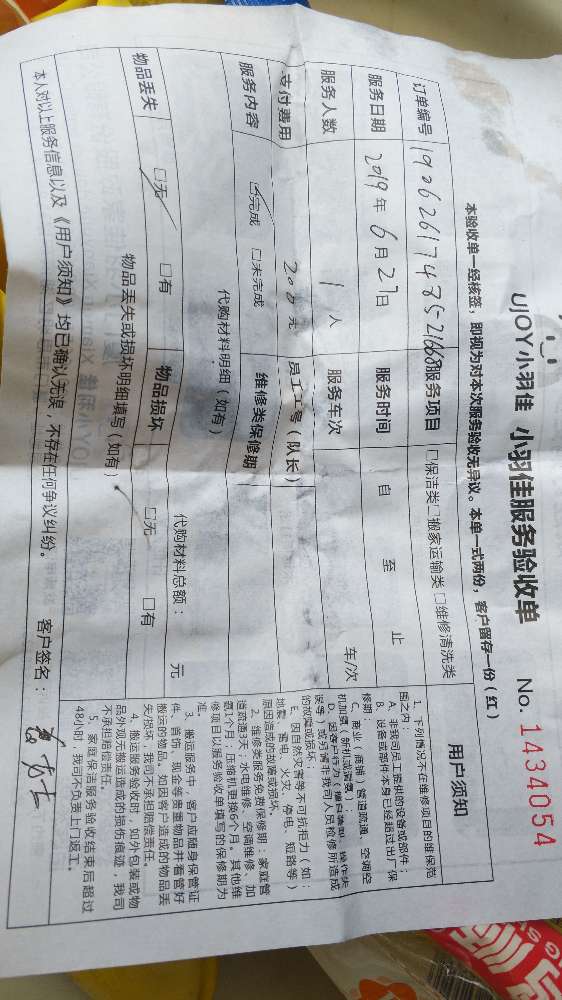 UJOY小羽佳 小羽佳服务验收单 No. 1434054
本验收单一经核签，即视为对本次服务验收无异议。本单一式两份，客户留存一份（红）
订单编号 服务项目 □保洁类□搬家运输类□维修清洗类
服务日期 2019年6月27日 服务时间 自 至 止
服务人数 1人 服务车次 车/次
支付费用 200元 员工工号（队长）
服务内容 □完成 □未完成 维修类保修期
代购材料明细（如有） 代购材料总额： 元
物品丢失 □无 □有 物品损坏 □无 □有
物品丢失或损坏明细填写（如有）
本人对以上服务信息以及《用户须知》均已确认无误，不存在任何争议纠纷。 客户签名：
用户须知
1、下列情况不在维修项目的维保范
围之内：
A、非我司员工提供的设备或部件；
B、设备或部件本身已经超过出厂保
修期；
C、商业（商铺）管道疏通、空调空
机加氟（新机或满氟）；
误等）或邀请非我司人员检修所造成
的故障或损坏；
E、因自然灾害等不可抗拒力（如：
地震、雷电、火灾、停电、短路等）
原因造成的故障或损坏。
2、维修类服务免费保修期：家庭管
道疏通3天；水电维修、空调维修、加
氨1个月；压缩机更换6个月。其他维
修项目以服务验收单填写的保修期为
准。
3、搬运服务中，客户应随身保管证
件、首饰、现金等贵重物品并看管好
搬运的物品，如因客户造成的物品丢
失/损坏，我司不承担赔偿责任。
4、搬运服务验收时，如外包装或物
品外观无搬运造成的损伤痕迹，我司
不承担赔偿责任。
5、家庭保洁服务验收结束后超过
48小时，我司不负责上门返工。